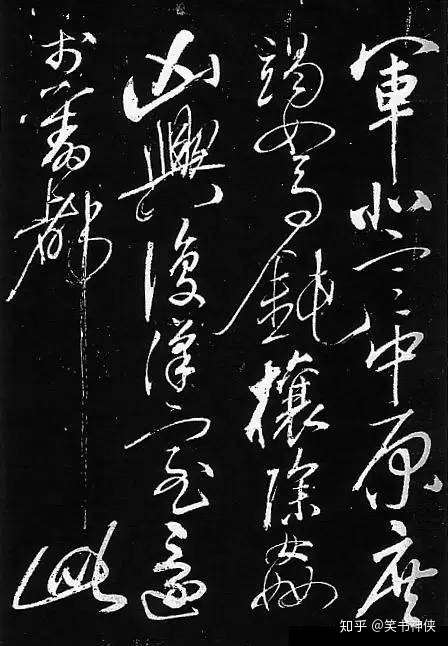 軍北定中原庶
竭駑鈍攘除姦
凶興復漢室還
於舊都此
知乎 @笑书神侠